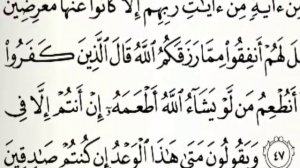 مِّنْ ءَايَةٍ مِّنْ ءَايَٰتِ رَبِّهِمْ إِلَّا كَانُوا۟ عَنْهَا مُعْرِضِينَ
لَ لَهُمْ أَنفِقُوا۟ مِمَّا رَزَقَكُمُ ٱللَّهُ قَالَ ٱلَّذِينَ كَفَرُوا۟
أَنُطْعِمُ مَن لَّوْ يَشَآءُ ٱللَّهُ أَطْعَمَهُۥٓ إِنْ أَنتُمْ إِلَّا فِى
٤٧ وَيَقُولُونَ مَتَىٰ هَٰذَا ٱلْوَعْدُ إِن كُنتُمْ صَٰدِقِينَ